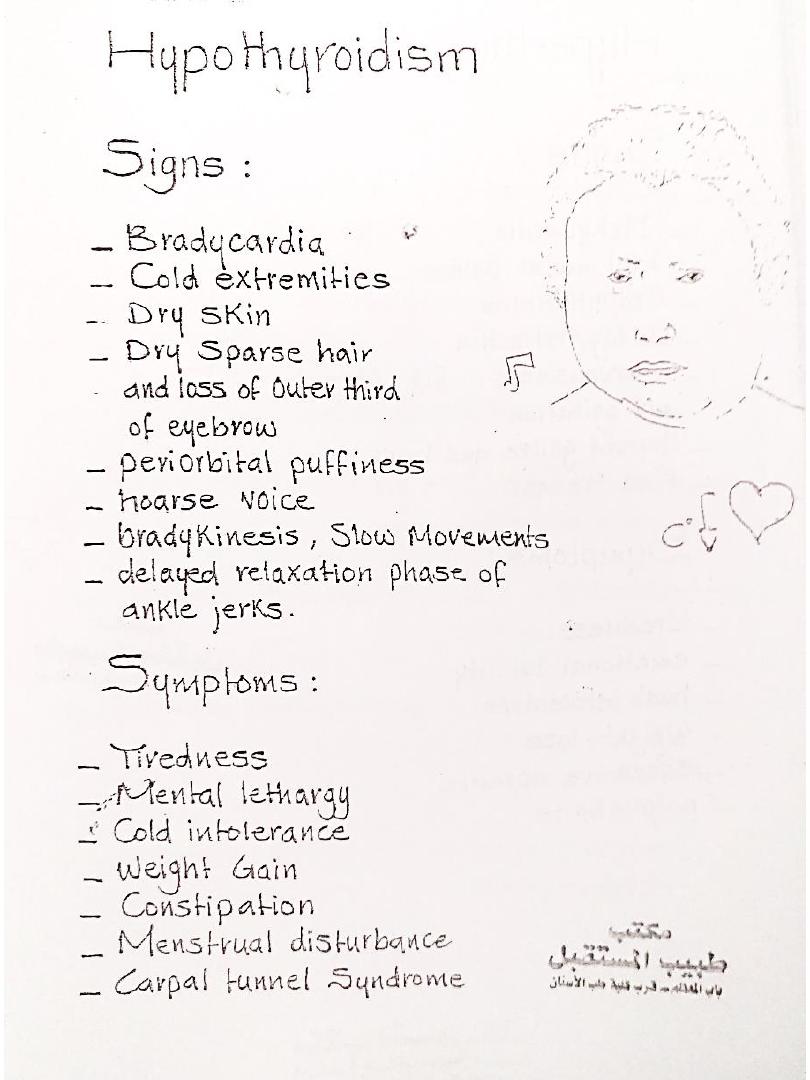 Hypothyroidism
Signs :
_ Bradycardia
_ Cold extremities
_ Dry skin
_ Dry Sparse hair
and loss of Outer third
of eyebrow
_ periorbital puffiness
_ hoarse voice
_ bradykinesis , Slow Movements
_ delayed relaxation phase of
ankle jerks.
C°
Symptoms :
_ Tiredness
_ Mental lethargy
_ Cold intolerance
_ Weight Gain
_ Constipation
_ Menstrual disturbance
_ Carpal tunnel Syndrome
مكتب
طبيب المستقبل
باب المعظم - قرب كلية طب الأسنان